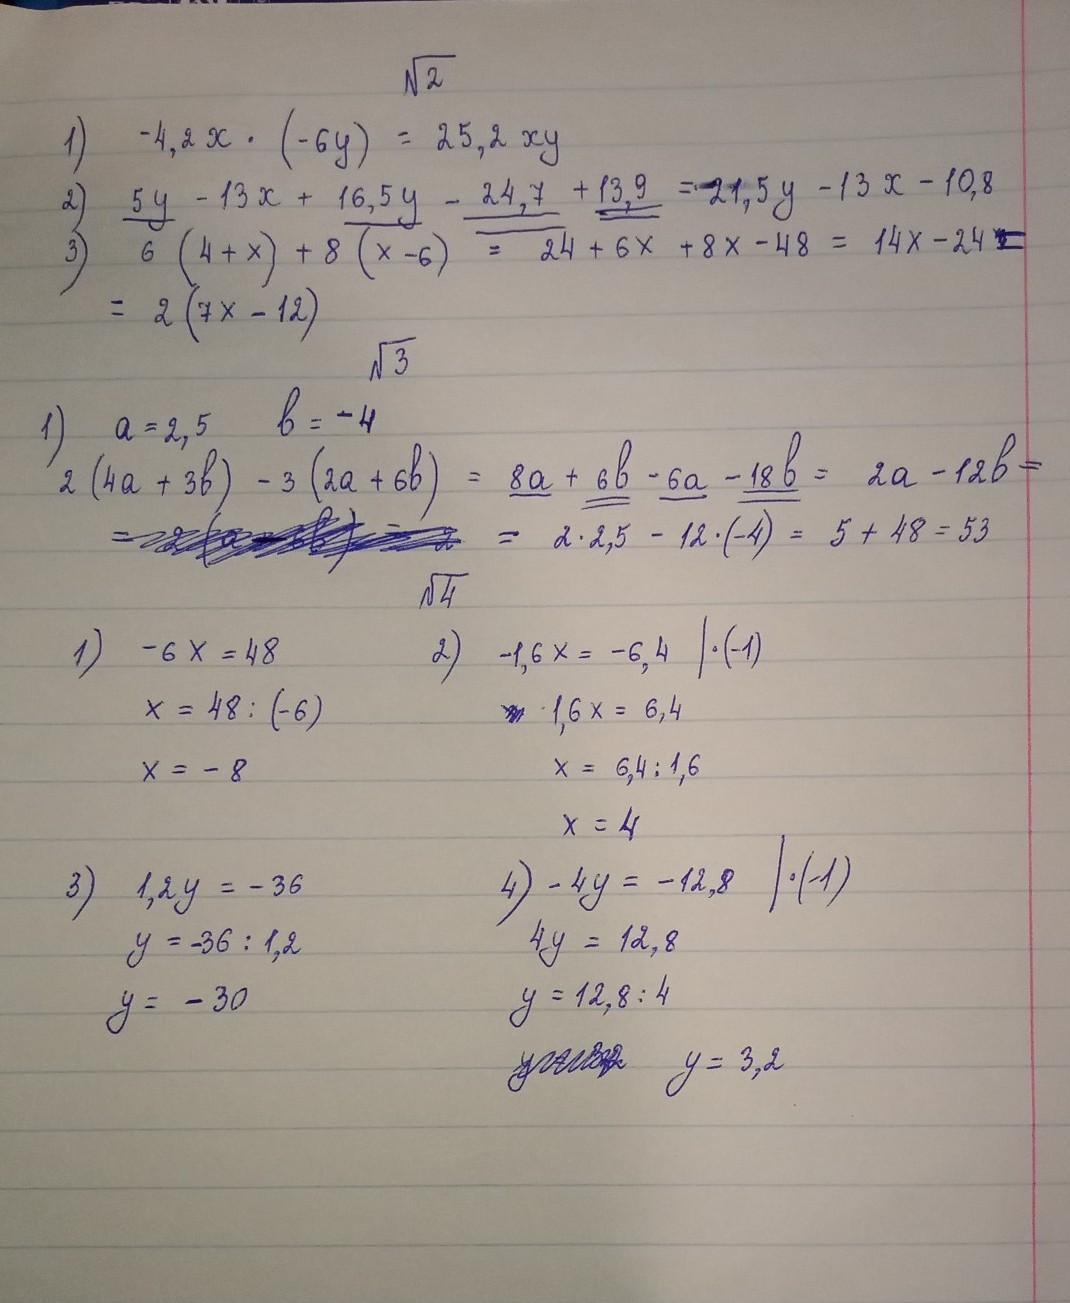 √2
1) -4,2x · (-6y) = 25,2 xy
2) 5y - 13x + 16,5y - 24,7 + 13,9 = 21,5y - 13x - 10,8
3) 6 (4+x) + 8 (x-6) = 24 + 6x + 8x - 48 = 14x - 24 =
= 2 (7x - 12)
√3
1) a = 2,5 b = -4
2 (4a + 3b) - 3 (2a + 6b) = 8a + 6b - 6a - 18b = 2a - 12b =
= 2·2,5 - 12·(-4) = 5 + 48 = 53
√4
1) -6x = 48 2) -1,6x = -6,4 |·(-1)
x = 48 : (-6) 1,6x = 6,4
x = -8 x = 6,4 : 1,6
x = 4
3) 1,2y = -36 4) -4y = -12,8 |·(-1)
y = -36 : 1,2 4y = 12,8
y = -30 y = 12,8 : 4
y = 3,2